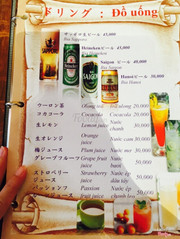 ドリンク : Đồ uống
サッポロビール 45,000
Bia Sapporo
Heinekenビール 45,000
Bia Heineken
Saigon ビール 40,000
Bia Saigon
Hanoiビール 30,000
Bia Hanoi
ウーロン茶 Olong tea 20,000
コカコーラ Cocacola 20,000
生レモン Lemon juice 30,000
生オレンジ Orange juice 30,000
梅ジュース Plum juice Nước mơ 30,000
グレープフルーツ Grape fruit juice Nước bưởi 50,000
ストロベリージュース Strawberry juice Nước ép dâu tây 50,000
パッションフ Passion fruit juice Nước chanh leo